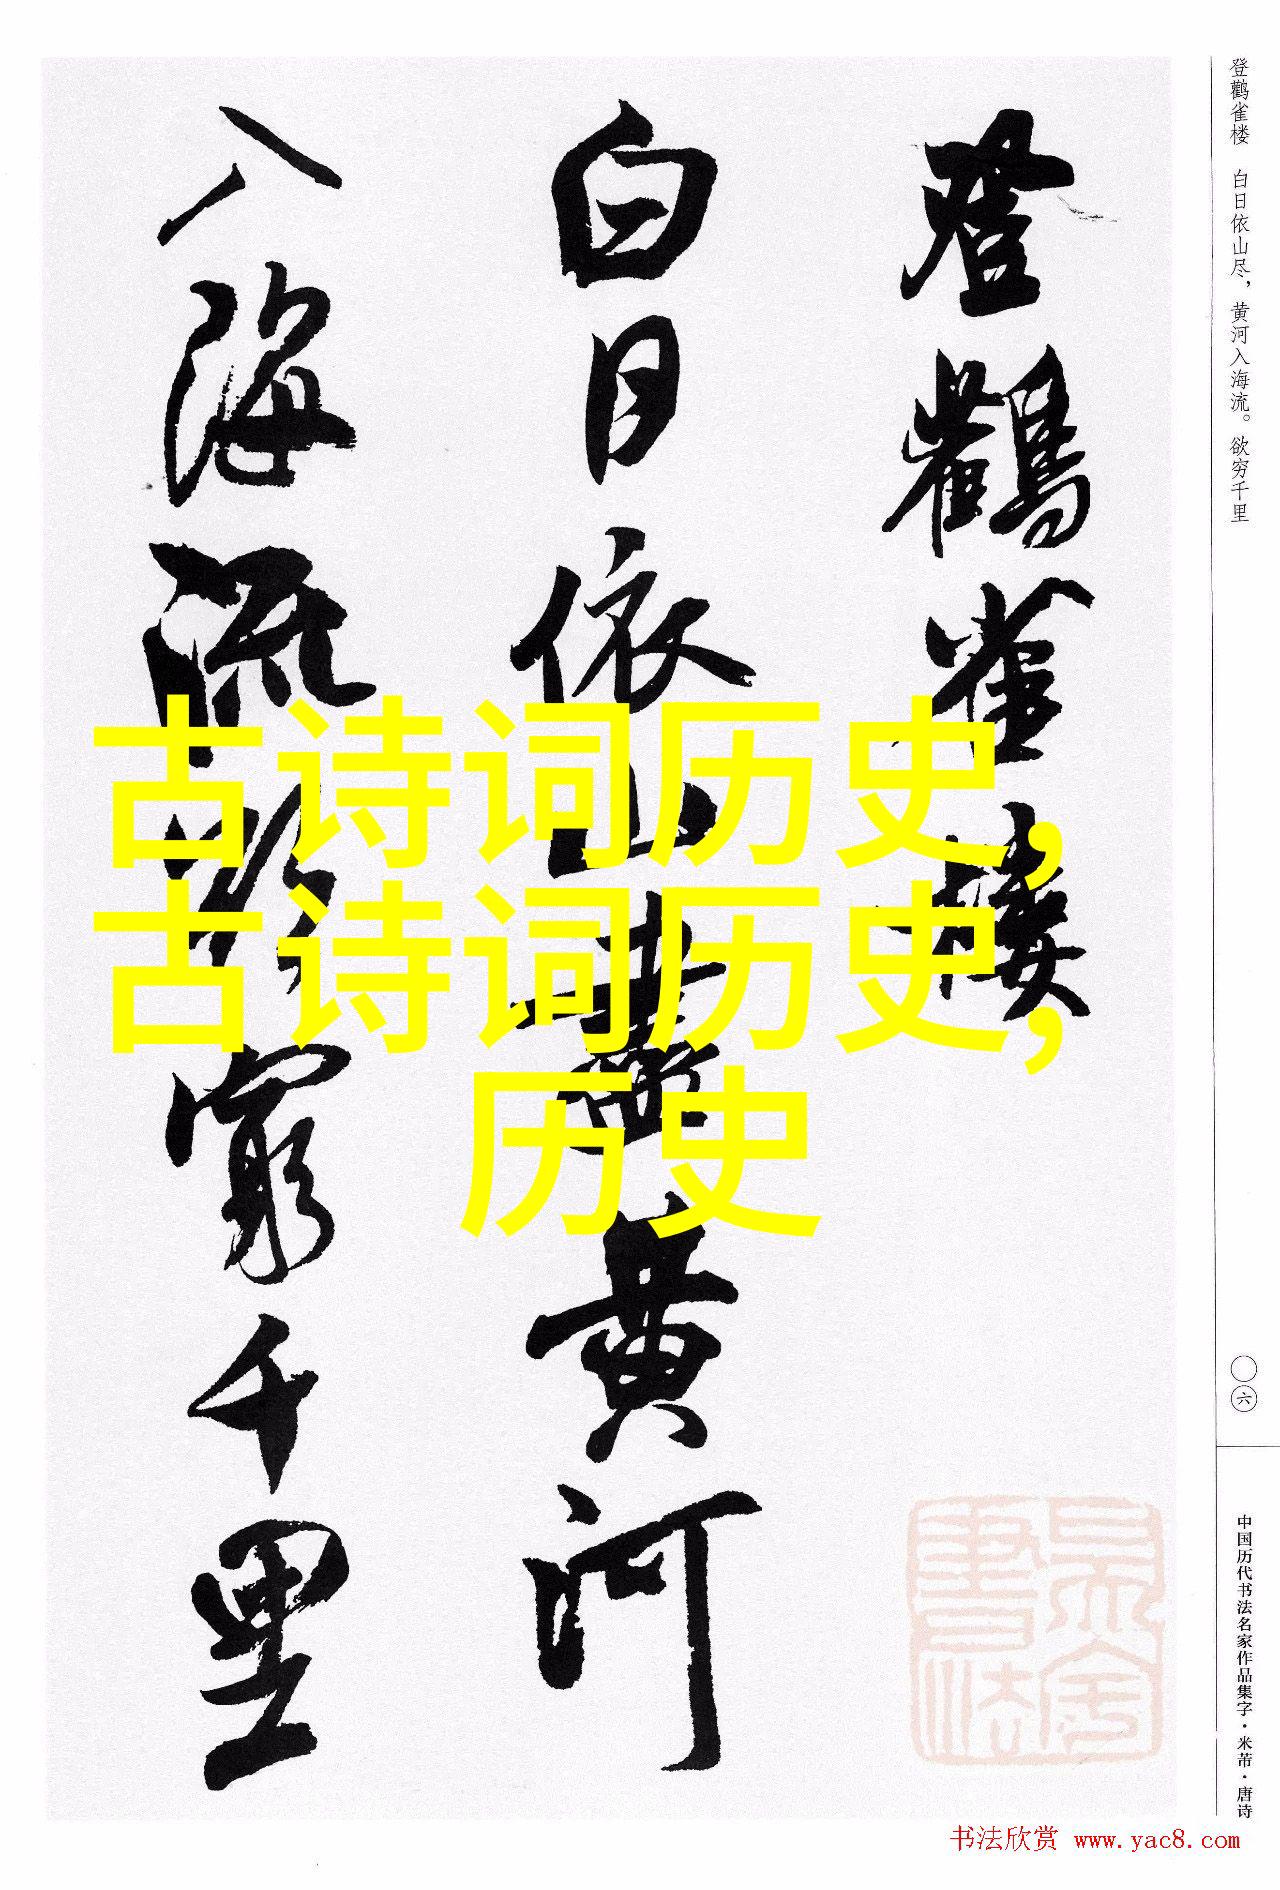 登鹳雀楼 白日依山尽，黄河入海流。欲穷千里
登鸛雀楼
白日依山盡黄河
入海流欲窮千里
古诗词历史,
古诗词历史,
历史
六
中国历代书法名家作品集字·米芾·唐诗
书法欣赏 www.yac8.com